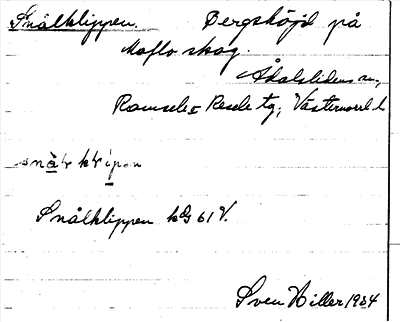 Snålklippen. Bergshöjd på
Moflo skog.
Ådalslidens sn,
Ramsele o Resele tg, Västernorrl. l.
snàlklipən
Snålklippen kG 61 V.
Sven Hiller 1934